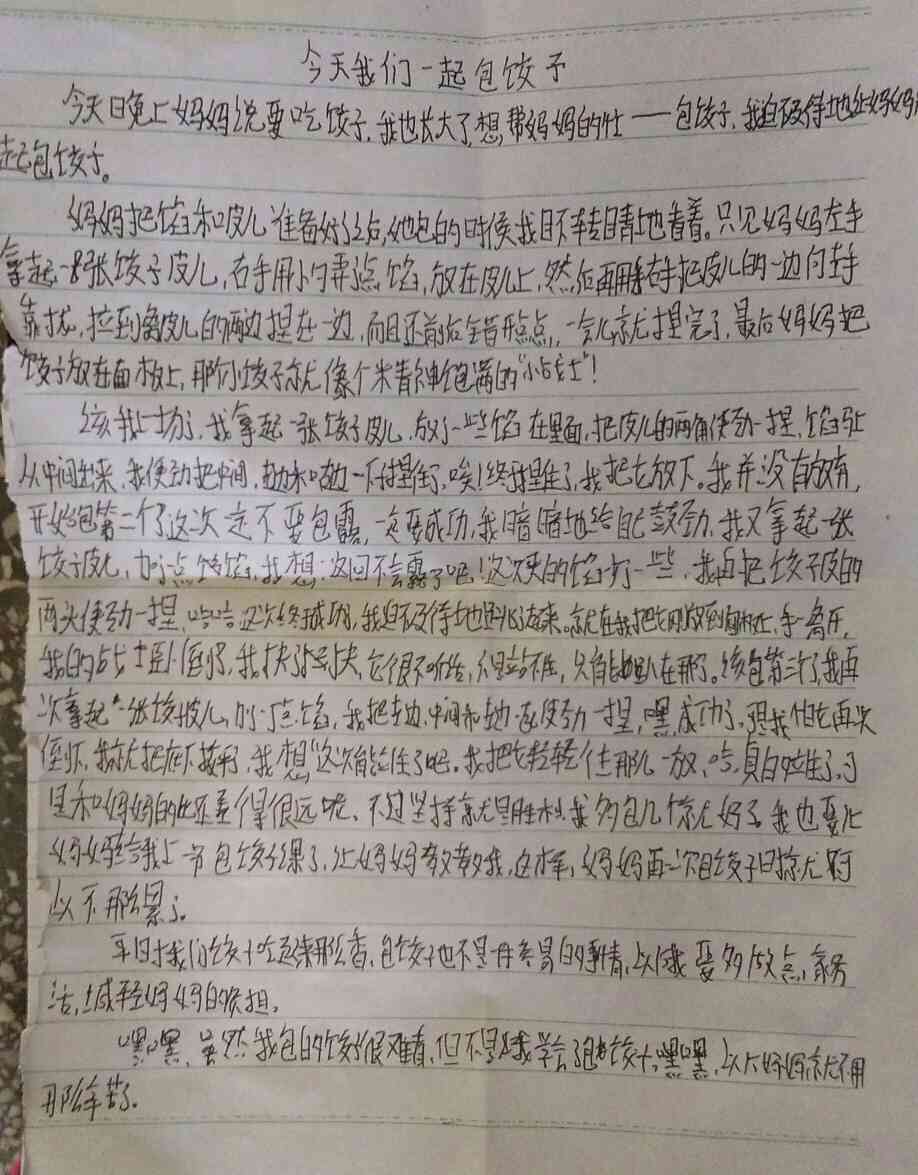 今天我们一起包饺子
今天日晚上妈妈说要吃饺子,我也长大了,想帮妈妈的忙——包饺子,我迫不及待地让妈妈
起包饺子。
妈妈把馅和皮儿准备好之后,她包的时候我目不转睛地看着。只见妈妈左手
拿起一张饺子皮儿,右手用小勺弄点馅,放在皮儿上,然后再用右手把皮儿的一边向左手
靠拢,拉到离皮儿的两边捏在一边,而且还前后错开点点,一会儿就捏完了,最后妈妈把
饺子放在面板上,那小饺子就像个精神饱满的“小战士”!
该我上场了,我拿起一张饺子皮儿,放了一些馅在里面,把皮儿的两角使劲一捏,馅
从中间出来,我使劲把中间,边和边一下捏住了,唉!终于捏住了,我把它放下。我并没有放弃,
开始包第二个了这次一定不要包露,一定要成功,我暗暗地给自己鼓劲,我又拿起一张
饺子皮儿,加了点馅,我想:这回不会露了吧!这次夹的馅少了一些,我再把饺子皮的
两头使劲一捏,哈哈这次终于成功,我迫不及待地来。就在我把它刚放到面板上,手一离开,
我的战士卧倒了,我扶了又扶,它很不听话,还是站不住,只能趴在那了。该包第三个了,我再
次拿起一张饺子皮儿,加了一点馅,我把边、中间和边一起使劲一捏,嘿,成功了,我怕它再次
倒下,我就把底下按平,我想“这次能站住了吧。我把它轻轻往那儿一放,哈,真的站住了,可
是和妈妈的比还差得很远呢,不过坚持就是胜利,我多包几个就好了,我也要让
妈妈给我上一节包饺子课了,让妈妈教教我,这样,妈妈再一次包饺子时就
以不那么累了。
平日时我们饺子吃起来那么香,包饺子也不是一件容易的事情,以后我要多做点,家务
活,减轻妈妈的负担。
嘿嘿,虽然我包的饺子很难看,但不是我学会了包饺子,嘿嘿,以后妈妈就不用
那么辛苦了。